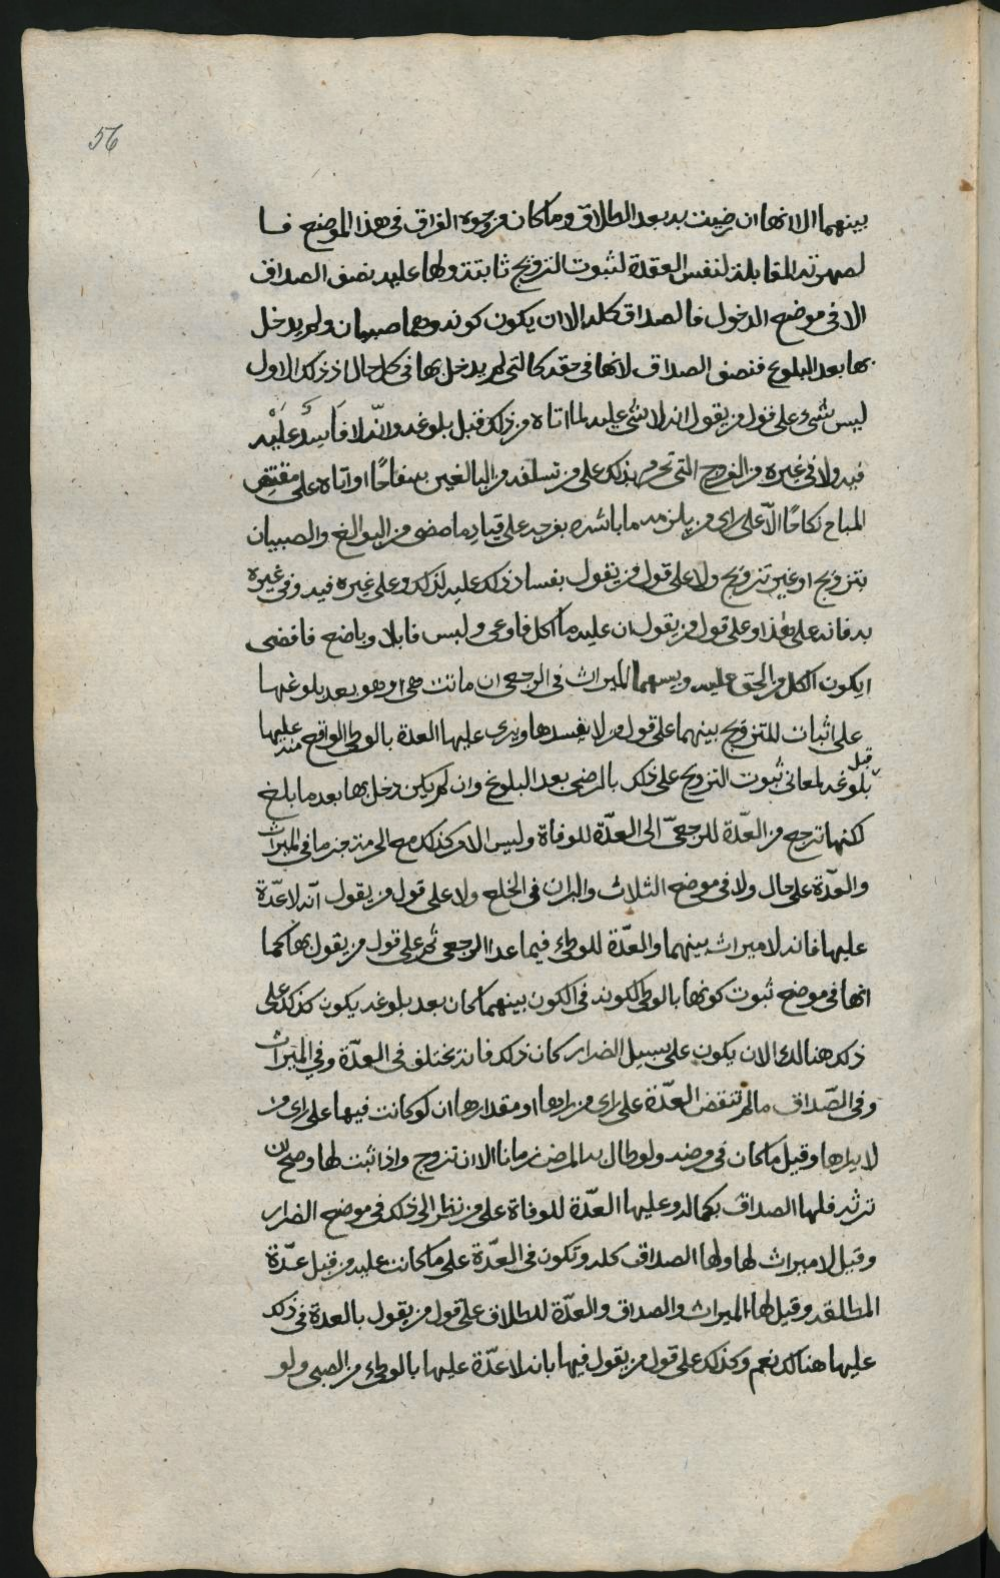 56
بينهما الا انها ان رضيت به بعد الطلاق وما كان من وجوه الفراق في هذا الموضع فــا
لصهرته المقابلة لنفس العقدة لثبوت التزويج ثابتة ولها عليه نصف الصداق
الا في موضع الدخول فالصداق كله الا ان يكون كونه وهما صبيان ولم يدخل
بها بعد البلوغ فنصف الصداق لانها في حقه كالتي لم يدخل بها في كل حال اذ ذلك الاول
ليس بشيء على قول من يقول انه لا شيء عليه لما اتاه من ذلك قبل بلوغه وانه لا فاسد عليه
فيه ولا في غيره من الفروج التي تحرم بذلك على من تسلفه من البالغين سفاحًا او اتاه على مقتضى
المباح نكاحًا الّا على راى من يلزمه ما باشره بفرجه على قياد ما مضى من البوالغ والصبيان
بتزويج او غير تزويج ولا على قول من يقول بفساد ذلك عليه لذلك وعلى غيره فيه وفي غيره
به فانه على هذا وعلى قول من يقول ان عليه ما اكل فاوعى ولبس فابلا وباضع فافضى
ايكون الكل من الحق عليه وبينهما الميراث في الرجعي ان ماتت هي او هو بعد بلوغها
على اثبات للتزويج بينهما على قول من لا يفسدها ويرى عليها العدة بالوطي الواقع منه عليها
قبل
بلوغه لمعاني ثبوت التزويج على ذلك بالرضى بعد البلوغ وان لم يكن دخل بها بعد ما بلغ
لكنها ترجع من العدّة للرجعيّ الى العدّة للوفاة وليس الامر كذلك مع الى منتجز ما في الميراث
والعدّة على حال ولا في موضع الثلاث والبران في الخلع ولا على قول من يقول انّه لا عدّة
عليها فانه لا ميراث بينهما والعدّة للوطء فيما عدا الرجعي ثم على قول من يقول بها كما
انها في موضع ثبوت كونها بالوطي لكونه في الكون بينهما كان بعد بلوغه يكون كذلك على
ذلك هنالك الا ان يكون على سبيل الضرار كان ذلك فانه يختلف في العدّة وفي الميراث
وفي الصّداق ما لم تنقض العدّة على راى من راها او مقدارها ان لو كانت فيها على راى من
لا يراها وقيل ما كان في مرضه ولو طال به المرض زمانا الا ان تزوج واذا ثبت لها وصح ان
ترثه فلها الصداق بكماله وعليها العدّة للوفاة على من نظر الى ذلك في موضع الضرار
وقيل لا ميراث لها ولها الصداق كله وتكون في العدّة على ما كانت عليه من قبل عدّة
المطلقه وقيل لها الميراث والصداق والعدّة للطلاق على قول من يقول بالعدة في ذلك
عليها هنالك نعم وكذلك على قول من يقول فيها بانه لا عدّة عليها بالوطء من الصبي ولو